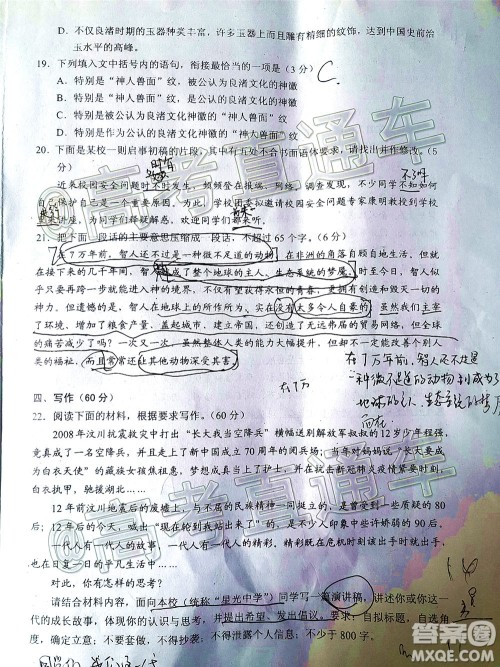 D. 不仅良渚时期的玉器种类丰富，许多玉器上而且雕有精细的纹饰，达到中国史前治
玉水平的高峰。
19. 下列填入文中括号内的语句，衔接最恰当的一项是（3 分）
C.
A. 特别是“神人兽面”纹，被公认为良渚文化的神徽
B. 特别是“神人兽面”纹，是公认的良渚文化的神徽
C. 特别是被公认为良渚文化神徽的“神人兽面”纹
D. 特别是作为公认的良渚文化神徽的“神人兽面”纹
20. 下面是某校一则启事初稿的片段，其中有五处不合书面语体要求，请找出并作修改。（5
分）
近来校园安全问题时不时发生，频频登在报纸、网络，调查发现，不少同学不知如何
自己保护自己是一个重要原因。为此，学校团委拟邀请校园安全问题专家康明教授到学校
来讲座，为同学们释疑解惑，欢迎同学们都来听。
21. 把下面一段话的主要意思压缩成一段话，不超过 65 个字。（6分）
在 7 万年前，智人还不过是一种微不足道的动物，在非洲的角落自顾自地生活。但
在接下来的几千年间，智人就成了整个地球的主人、生态系统的梦魇。时至今日，智人似
乎只要再跨一步就能进入神的境界，不仅有望获得永恒的青春，更拥有创造和毁灭一切的神
力。但遗憾的是，智人在地球上的所作所为，实在没有太多令人自豪的。虽然我们主宰
了环境，增加了粮食产量，盖起城市，建立帝国，还创造了无远弗届的贸易网络，但全球
的痛苦减少了吗？一次又一次，虽然整体人类的能力大幅提升，但却不一定能改善个别人
类的福祉，而且常常还让其他动物深受其害。
在7万年前，智人还不过是
四、写作（60 分）
22. 阅读下面的材料，根据要求写作。（60 分）
2008 年汶川抗震救灾中打出“长大我当空降兵”横幅送别解放军叔叔的 12 岁少年程强，
竟真成了一名空降兵，并且走上了新中国成立 70 周年的阅兵场；当年对妈妈说“长大要成为
白衣天使”的藏族女孩佟仙恩，梦想成真当上了护士，在抗击新冠肺炎疫情紧要时刻，
白衣执甲，驰援湖北……
12 年前汶川地震后的马路上，与不屈的民族精神一同挺立的，是曾受到一些质疑的 80
后；12 年后的今天，喊出“现在轮到我站出来了”的，是不少人印象中些许娇弱的 90 后。
一代人有一代人的故事，一代人有一代人的精彩。精彩既在危机时刻该出手时就出手，
也在日复一日的平凡生活中……
对此，你有怎样的思考？
请结合材料内容，面向本校（统称“星光中学”）同学写一篇演讲稿，讲述你或你这一
代的成长故事，体现你的认识与思考，并提出希望、发出倡议。要求：自拟标题，自选角
度，确定立意；不要套作，不得抄袭；不得泄露个人信息；不少于 800 字。
高考直通车
高考直通车
答案圈
MXQE.COM